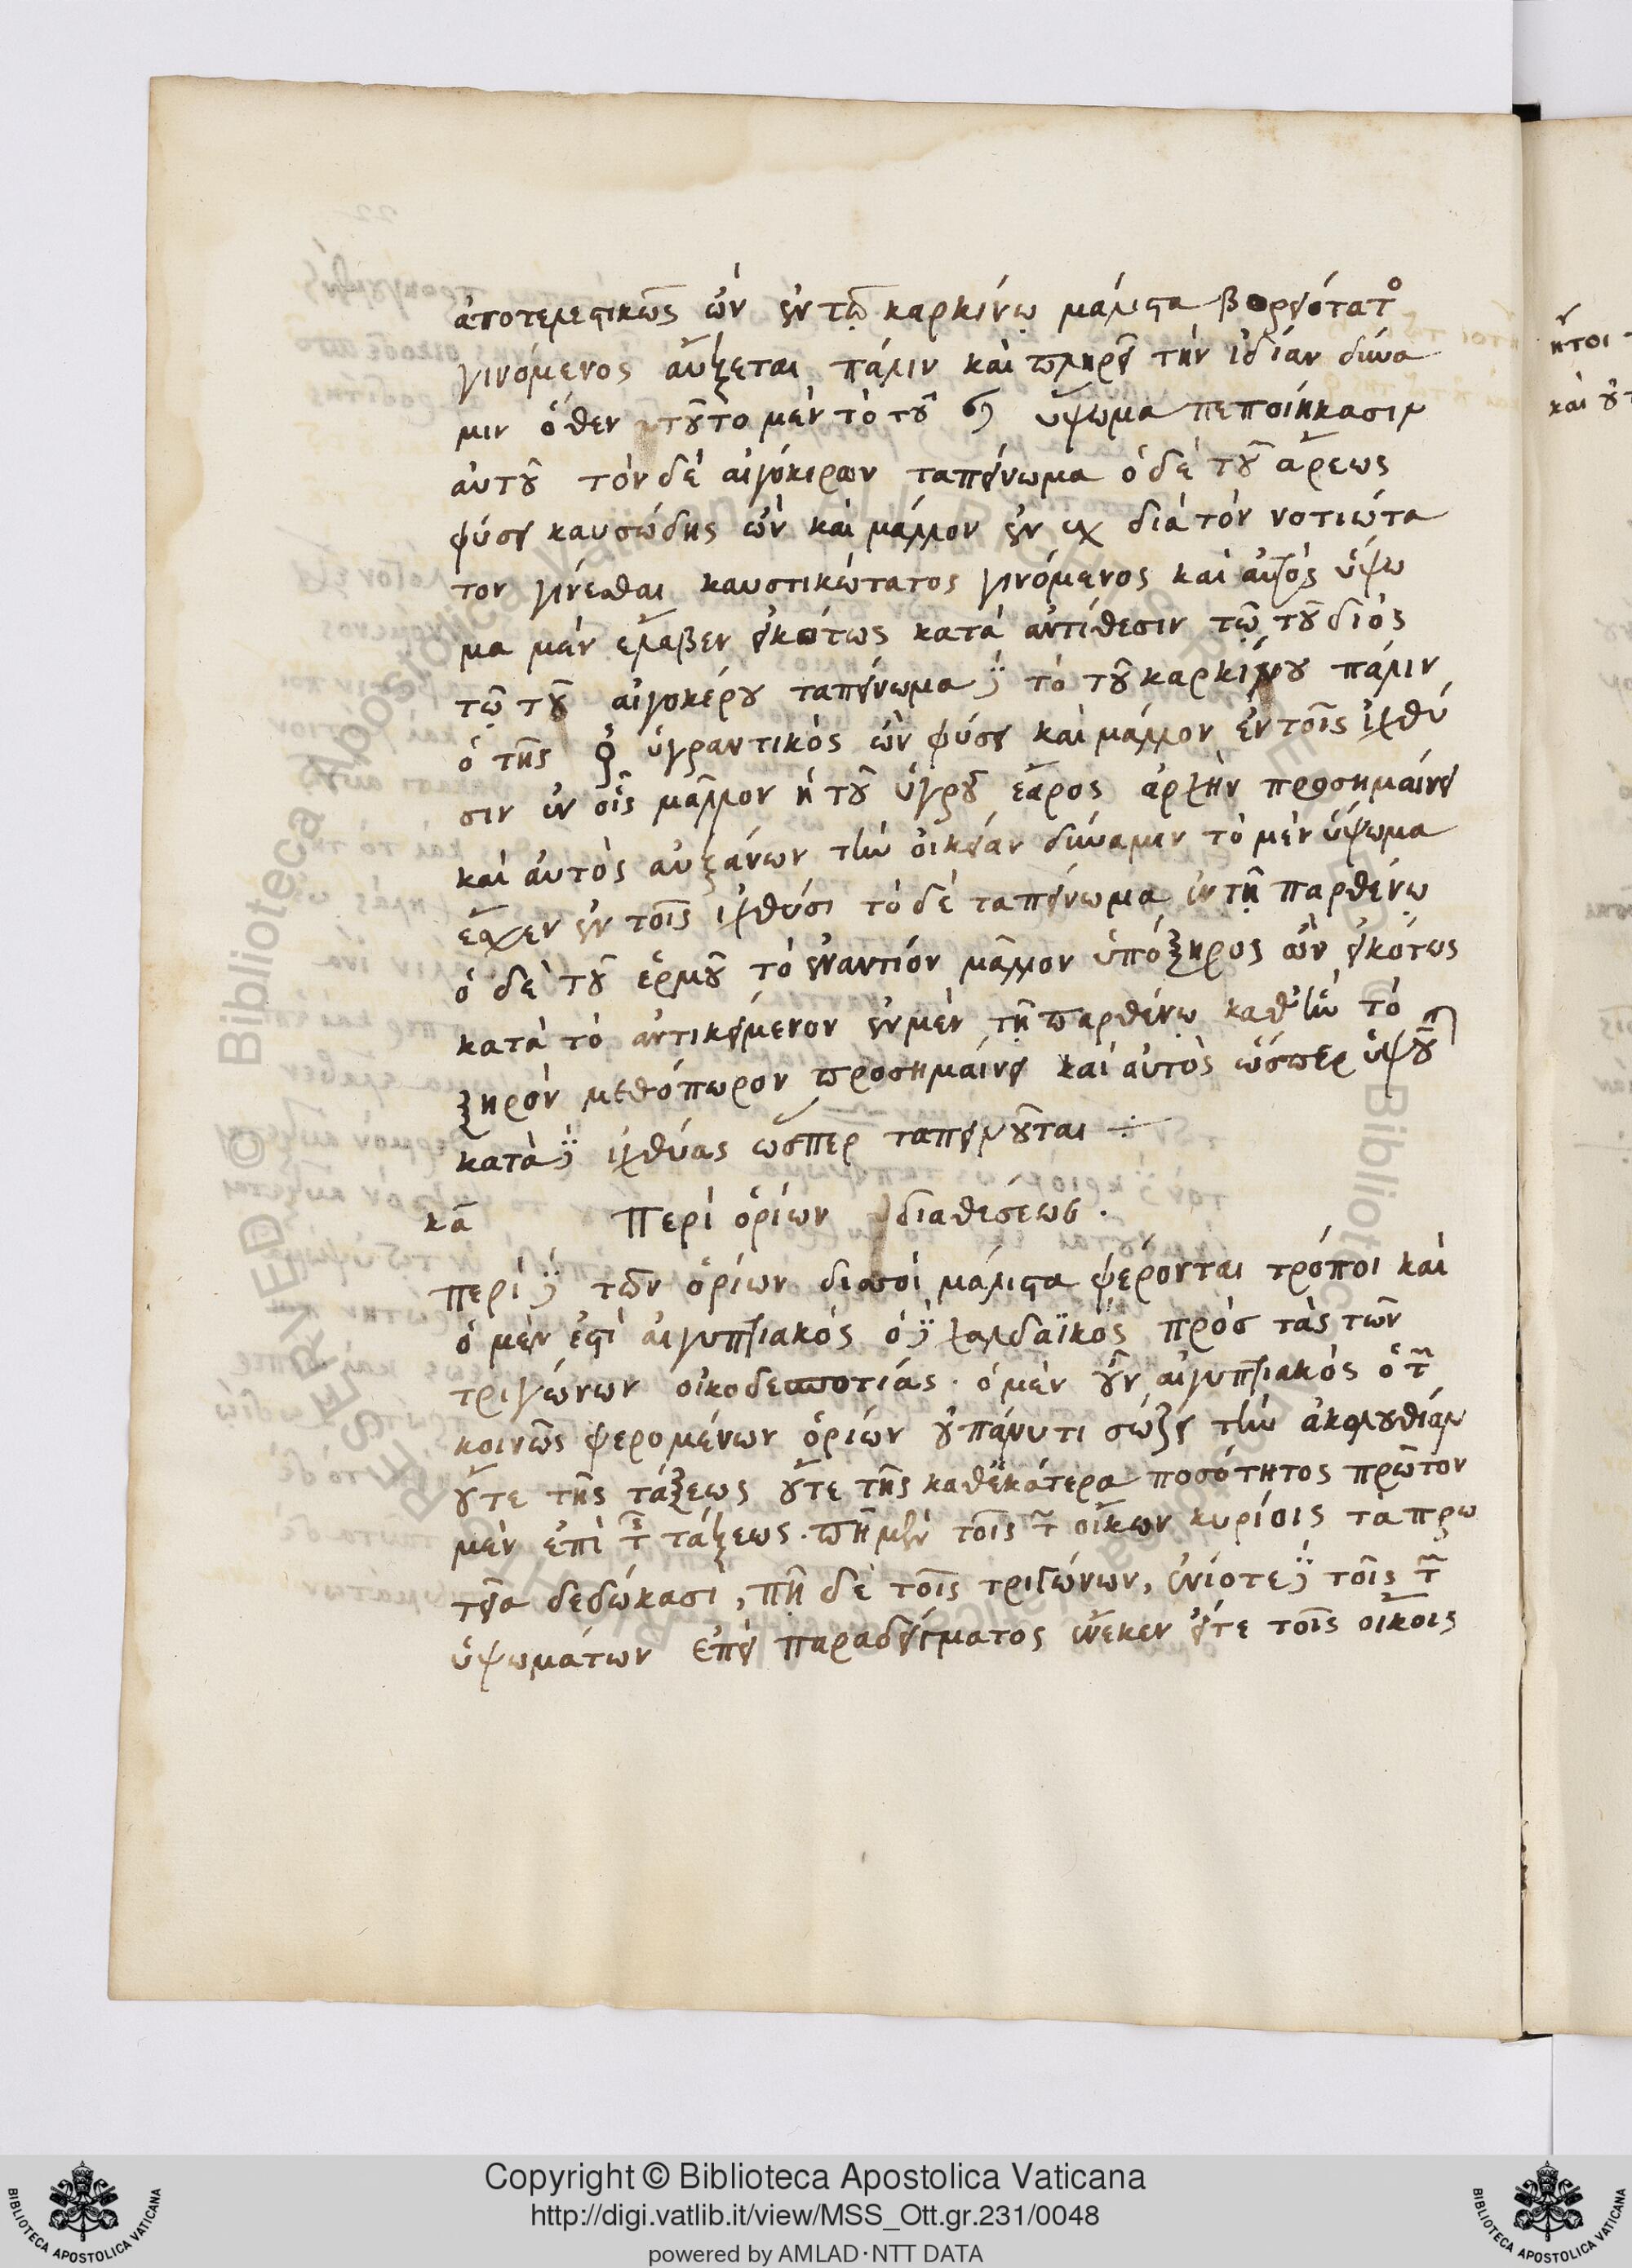 ἀποτελεστικῶς ὢν ἐν τῷ καρκίνῳ μάλιστα βορειότατο
γινόμενος αὔξεται πάλιν καὶ πληροῖ τὴν ἰδίαν δύνα
μιν ὅθεν τοῦτο μὲν τὸ τοῦ ὕψωμα πεποίηκασιν
αὐτοῦ τὸν δὲ αἰγόκερων ταπείνωμα ὁ δὲ τοῦ ἄρεως
φύσει καυσώδης ὢν καὶ μᾶλλον ἐν διὰ τὸν νοτιώτα
τον γίνεσθαι καυστικώτατος γινόμενος καὶ αὐτὸς ὕψω
μα μὲν ἔλαβεν εἰκότως κατὰ ἀντίθεσιν τῷ τοῦ διὸς
τῷ τοῦ αἰγοκέρου ταπείνωμα δὲ τὸ τοῦ καρκίνου πάλιν
ὁ τῆς ♀ ὑγραντικὸς ὢν φύσει καὶ μᾶλλον ἐν τοῖς ἰχθύ
σιν ἐν οἷς μᾶλλον ἡ τοῦ ὑγροῦ ἔαρος ἀρχὴν προσημαίνει
καὶ αὐτὸς αὐξάνων τὴν οἰκείαν δύναμιν τὸ μὲν ὕψωμα
ἔσχεν ἐν τοῖς ἰχθύσι τὸ δὲ ταπείνωμα ἐν τῇ παρθένῳ
ὁ δὲ τοῦ ἑρμοῦ τὸ ἐναντίον μᾶλλον ὑπόξηρος ὢν εἰκότως
κατὰ τὸ ἀντικείμενον ἐν μὲν τῇ παρθένῳ καθ' ἣν τὸ
ξηρὸν μεθόπωρον προσημαίνει καὶ αὐτὸς ὥσπερ ὑψοῦ
κατὰ δὲ ἰχθύας ὥσπερ ταπεινοῦται
κα Περὶ ὁρίων διαθέσεως.
περὶ δὲ τῶν ὁρίων δισσοὶ μάλιστα φέρονται τρόποι καὶ
ὁ μὲν ἐστὶ αἰγυπτιακὸς ὁ δὲ χαλδαϊκὸς πρὸς τὰς τῶν
τριγώνων οἰκοδεσποτίας. ὁ μὲν οὖν αἰγυπτιακὸς ὁ τῶν
κοινῶς φερομένων ὁρίων οὐ πάνυ τι σώζει τὴν ἀκολουθίαν
οὔτε τῆς τάξεως οὔτε τῆς καθ' ἑκάτερα ποσότητος πρῶτον
μὲν ἐπὶ τῆς τάξεως. πῇ μὲν τοῖς τῶν οἴκων κυρίοις τὰ πρω
τεῖα δεδώκασι, πῇ δὲ τοῖς τριγώνων, ἐνίοτε δὲ τοῖς τῶν
ὑψωμάτων ἐπεὶ παραδείγματος ἕνεκεν εἴτε τοῖς οἴκοις
ἤτοι
Biblioteca Apostolica Vaticana
Copyright © Biblioteca Apostolica Vaticana
http://digi.vatlib.it/view/MSS_Ott.gr.231/0048
powered by AMLAD·NTT DATA
BIBLIOTECA APOSTOLICA VATICANA
BIBLIOTECA APOSTOLICA VATICANA